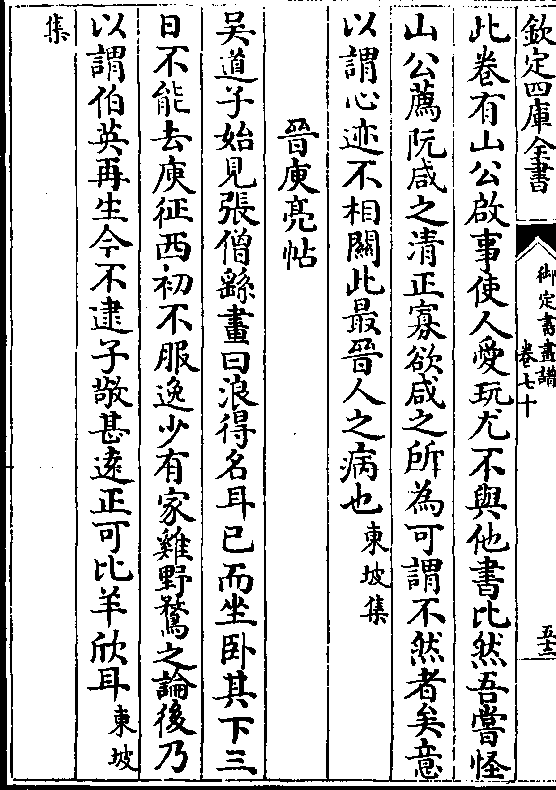 欽定四庫全書
御定書畫譜
卷七十
五十三
此卷有山公啟事使人愛玩尤不與他書比然吾嘗怪
山公薦阮咸之清正寡欲咸之所為可謂不然者矣意
以謂心迹不相關此最晉人之病也東坡集
晉庾亮帖
吴道子始見張僧繇畫曰浪得名耳已而坐卧其下三
日不能去庾征西初不服逸少有家雞野鶩之論後乃
以謂伯英再生今不逮子敬甚逺正可比羊欣耳東坡
集